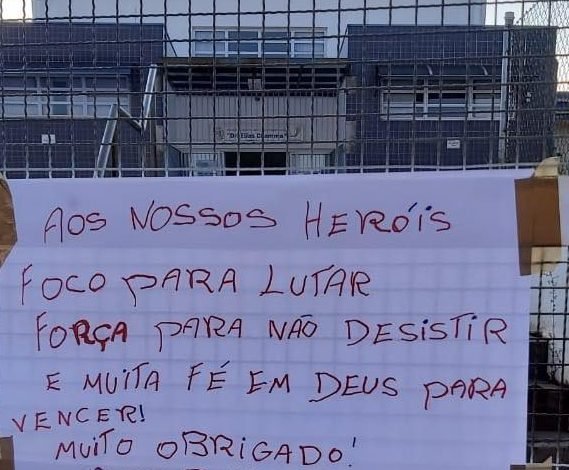 "Dr. Elias Chamma"
AOS NOSSOS HERÓIS
FOCO PARA LUTAR
FORÇA PARA NÃO DESISTIR
E MUITA FÉ EM DEUS PARA
VENCER!
MUITO OBRIGADO!